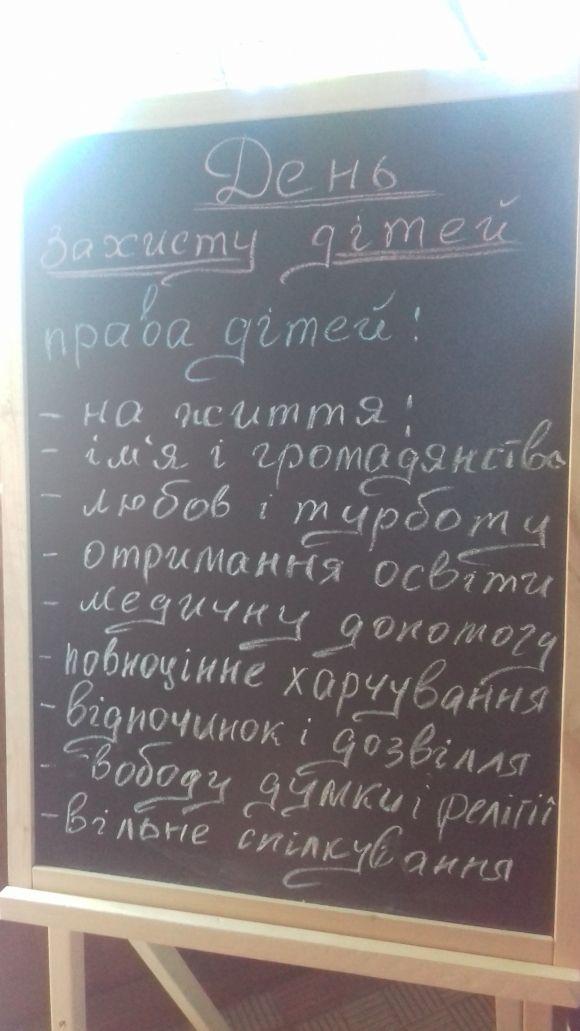 День
захисту дітей
права дітей!
- на життя!
- ім'я і громадянство
- любов і турботу
- отримання освіти
- медичну допомогу
- повноцінне харчування
- відпочинок і дозвілля
- свободу думки і релігії
- вільне спілкування